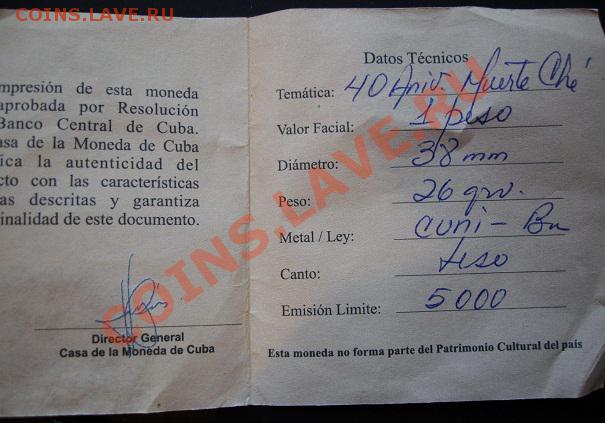 COINS.LAVE.RU
COINS.LAVE.RU
mpresión de esta moneda
aprobada por Resolución
Banco Central de Cuba.
asa de la Moneda de Cuba
ica la autenticidad del
cto con las características
as descritas y garantiza
inalidad de este documento.
Director General
Casa de la Moneda de Cuba
Datos Técnicos
Temática: 40 Aniv. Muerte Ché
Valor Facial: 1 peso
Diámetro: 38 mm
Peso: 26 grs.
Metal / Ley: CuNi - Bu
Canto: liso
Emisión Limite: 5000
Esta moneda no forma parte del Patrimonio Cultural del país
COINS.LAVE.RU